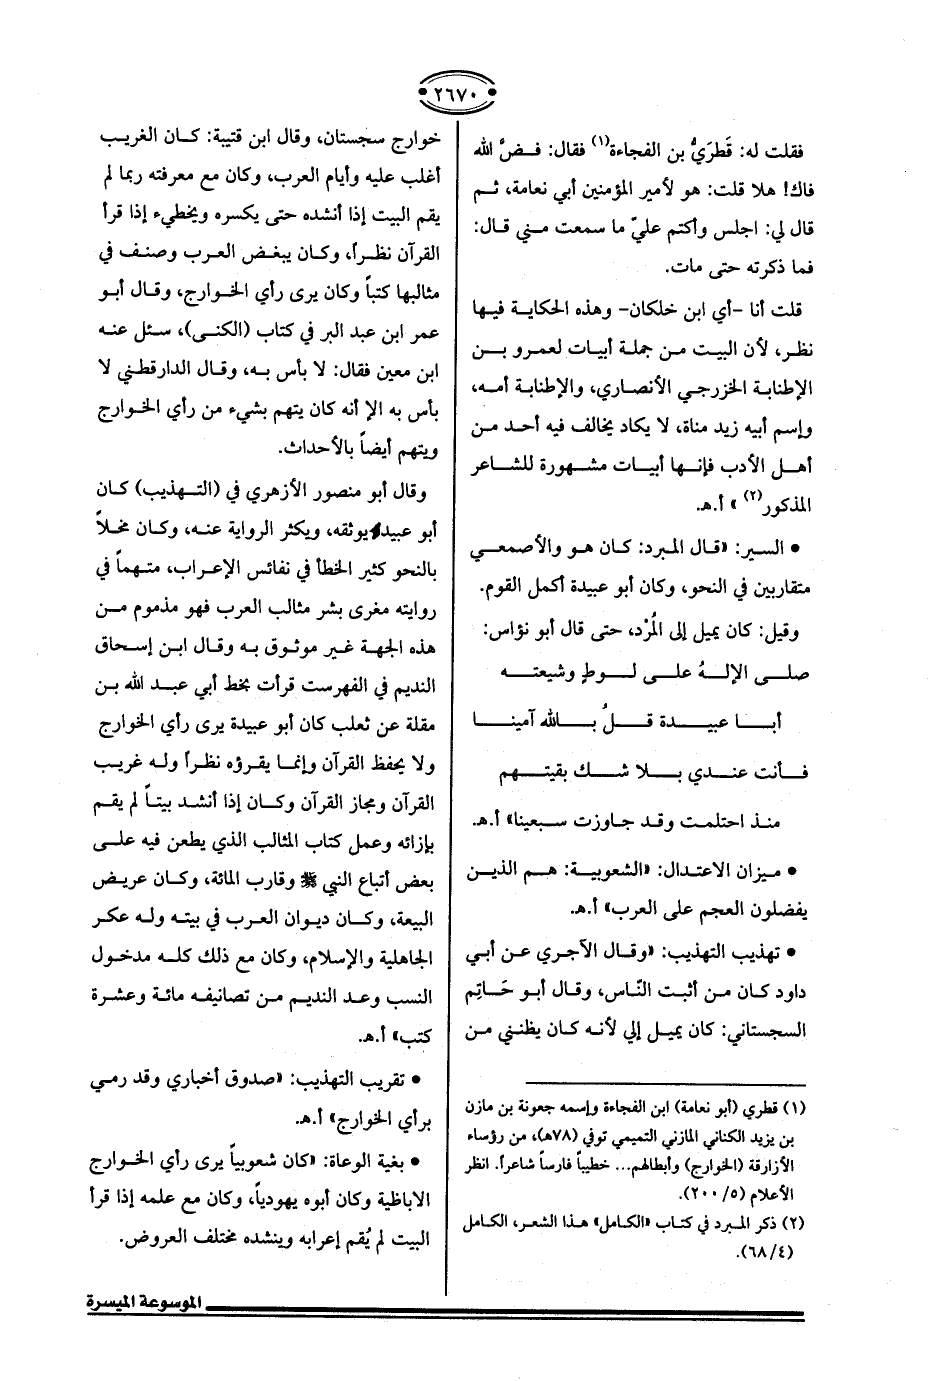 ٢٦٧٠
فقلت له: قَطَرَيُّ بن الفجاءة(١) فقال: فـضَّ الله
فاك! هلا قلت: هو لأمير المؤمنين أبي نعامة، ثـم
قال لي: اجلس وأكتم عليّ ما سمعت مـني قال:
فما ذكرته حتى مات.
قلت أنا -أي ابن خلكان- وهذه الحكاية فيها
نظر، لأن البيت مـن جملة أبيات لعمرو بـن
الإطنابة الخزرجي الأنصاري، والإطنابة أمه،
وإسم أبيه زيد مناة، لا يكاد يخالف فيه أحد مـن
أهـل الأدب فإنـها أبيات مشهورة للشاعر
المذكور(٢)» أ.هـ.
• السير: «قال المبرد: كان هو والأصمعي
متقاربين في النحو، وكان أبو عبيدة أكمل القوم.
وقيل: كان يميل إلى المُرْد، حتى قال أبو نؤاس:
صلـى الإلـهُ علـى لـوطٍ وشيعتـه
أبـا عبيـدة قـلُ بـالله آمينـا
فـأنت عنـدي بـلا شـك بقيتـهم
منـذ احتلمـت وقـد جاوزت سـبعينا» أ.هـ.
• ميزان الاعتدال: «الشعوبية: هـم الذيـن
يفضلون العجم على العرب» أ.هـ.
• تهذيب التهذيب: «وقال الآجري عن أبي
داود كان مـن أثبت النّاس، وقال أبـو حَاتِم
السجستاني: كان يميل إلي لأنه كان يظنني مـن
(١) قطري (أبو نعامة) ابن الفجاءة وإسمه جعونة بن مازن
بن يزيد الكناني المازني التميمي توفي (٧٨هـ)، من رؤساء
الأزارقة (الخوارج) وأبطالهم... خطيباً فارساً شاعراً. انظر
الأعلام (٥/ ٢٠٠).
(٢) ذكر المبرد في كتاب «الكامل» هذا الشعر، الكامل
(٤/ ٦٨).
خوارج سجستان، وقال ابن قتيبة: كـان الغريب
أغلب عليه وأيام العرب، وكان مع معرفته ربما لم
يقم البيت إذا أنشده حتى يكسره ويخطيء إذا قرأ
القرآن نظراً، وكـان يبغض العرب وصنف في
مثالبها كتباً وكان يرى رأي الخوارج، وقال أبو
عمر ابن عبد البر في كتاب (الكنى)، سئل عنه
ابن معين فقال: لا بأس به، وقال الدارقطني لا
بأس به الإ أنه كان يتهم بشيء من رأي الخوارج
ويتهم أيضاً بالأحداث.
وقال أبو منصور الأزهري في (التهذيب) كـان
أبو عبيد يوثقه، ويكثر الرواية عنه، وكـان مخلاً
بالنحو كثير الخطأ في نفائس الإعراب، متهماً في
روايته مغرى بشر مثالب العرب فهو مذموم مـن
هذه الجهة غير موثوق به وقال ابن إسحاق
النديم في الفهرست قرأت بخط أبي عبد الله بـن
مقلة عن ثعلب كان أبو عبيدة يرى رأي الخوارج
ولا يحفظ القرآن وإنما يقرؤه نظراً وله غريب
القرآن ومجاز القرآن وكـان إذا أنشد بيتـاً لم يقم
بإزائه وعمل كتاب المثالب الذي يطعن فيه على
بعض أتباع النبي ﷺ وقارب المائة، وكـان عريض
البيعة، وكـان ديوان العرب في بيته وله عكر
الجاهلية والإسلام، وكان مع ذلك كله مدخول
النسب وعد النديم مـن تصانيفه مائة وعشرة
كتب» أ.هـ.
• تقريب التهذيب: «صدوق أخباري وقد رمي
برأي الخوارج» أ.هـ.
• بغية الوعاة: «كان شعوبياً يرى رأي الخوارج
الاباظية وكان أبوه يهودياً، وكان مع علمه إذا قرأ
البيت لم يُقم إعرابه وينشده مختلف العروض.
الموسوعة الميسرة